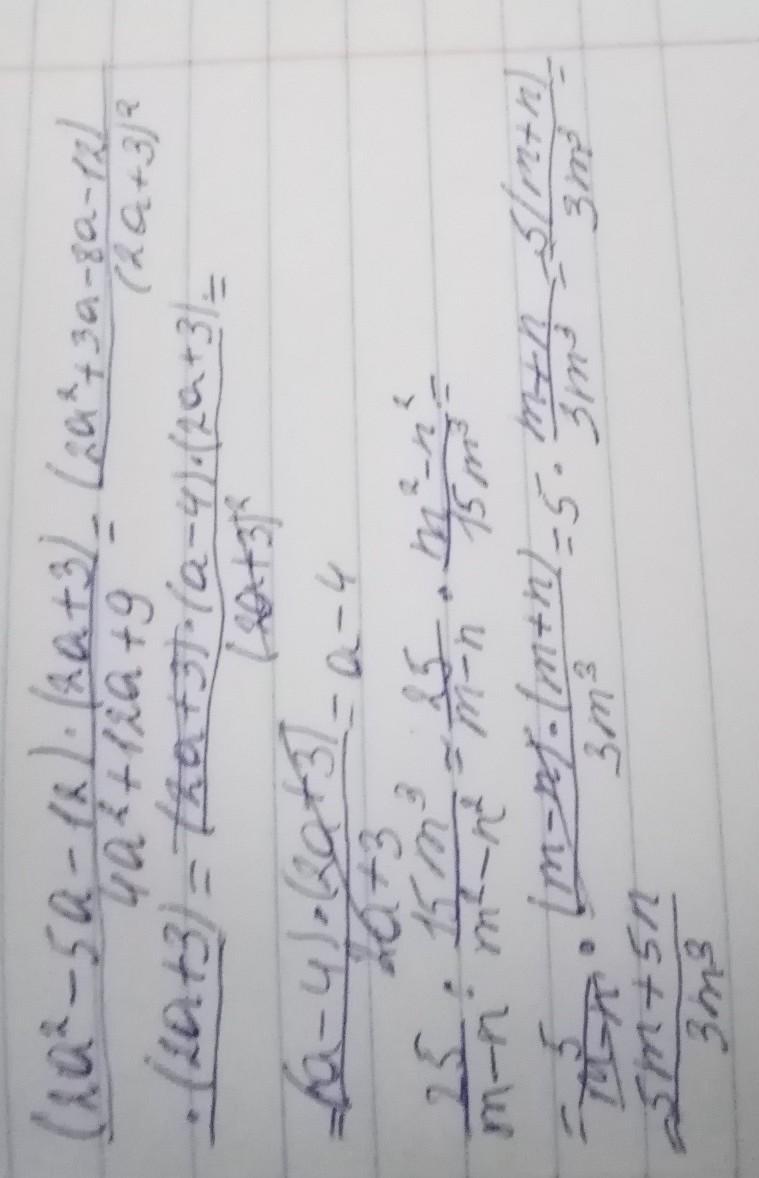 (2a²-5a-12)·(2a+3)/4a²+12a+9 = (2a²+3a-8a-12)/(2a+3)²
·(2a+3) = (2a+3)·(a-4)·(2a+3)/(2a+3)² =
=(a-4)·(2a+3)/2a+3 = a-4
25/m-n : 15m³/m²-n² = 25/m-n · m²-n²/15m³ =
= 5/m-n · (m-n)·(m+n)/3m³ = 5· m+n/3m³ = 5(m+n)/3m³ =
= 5m+5n/3m³